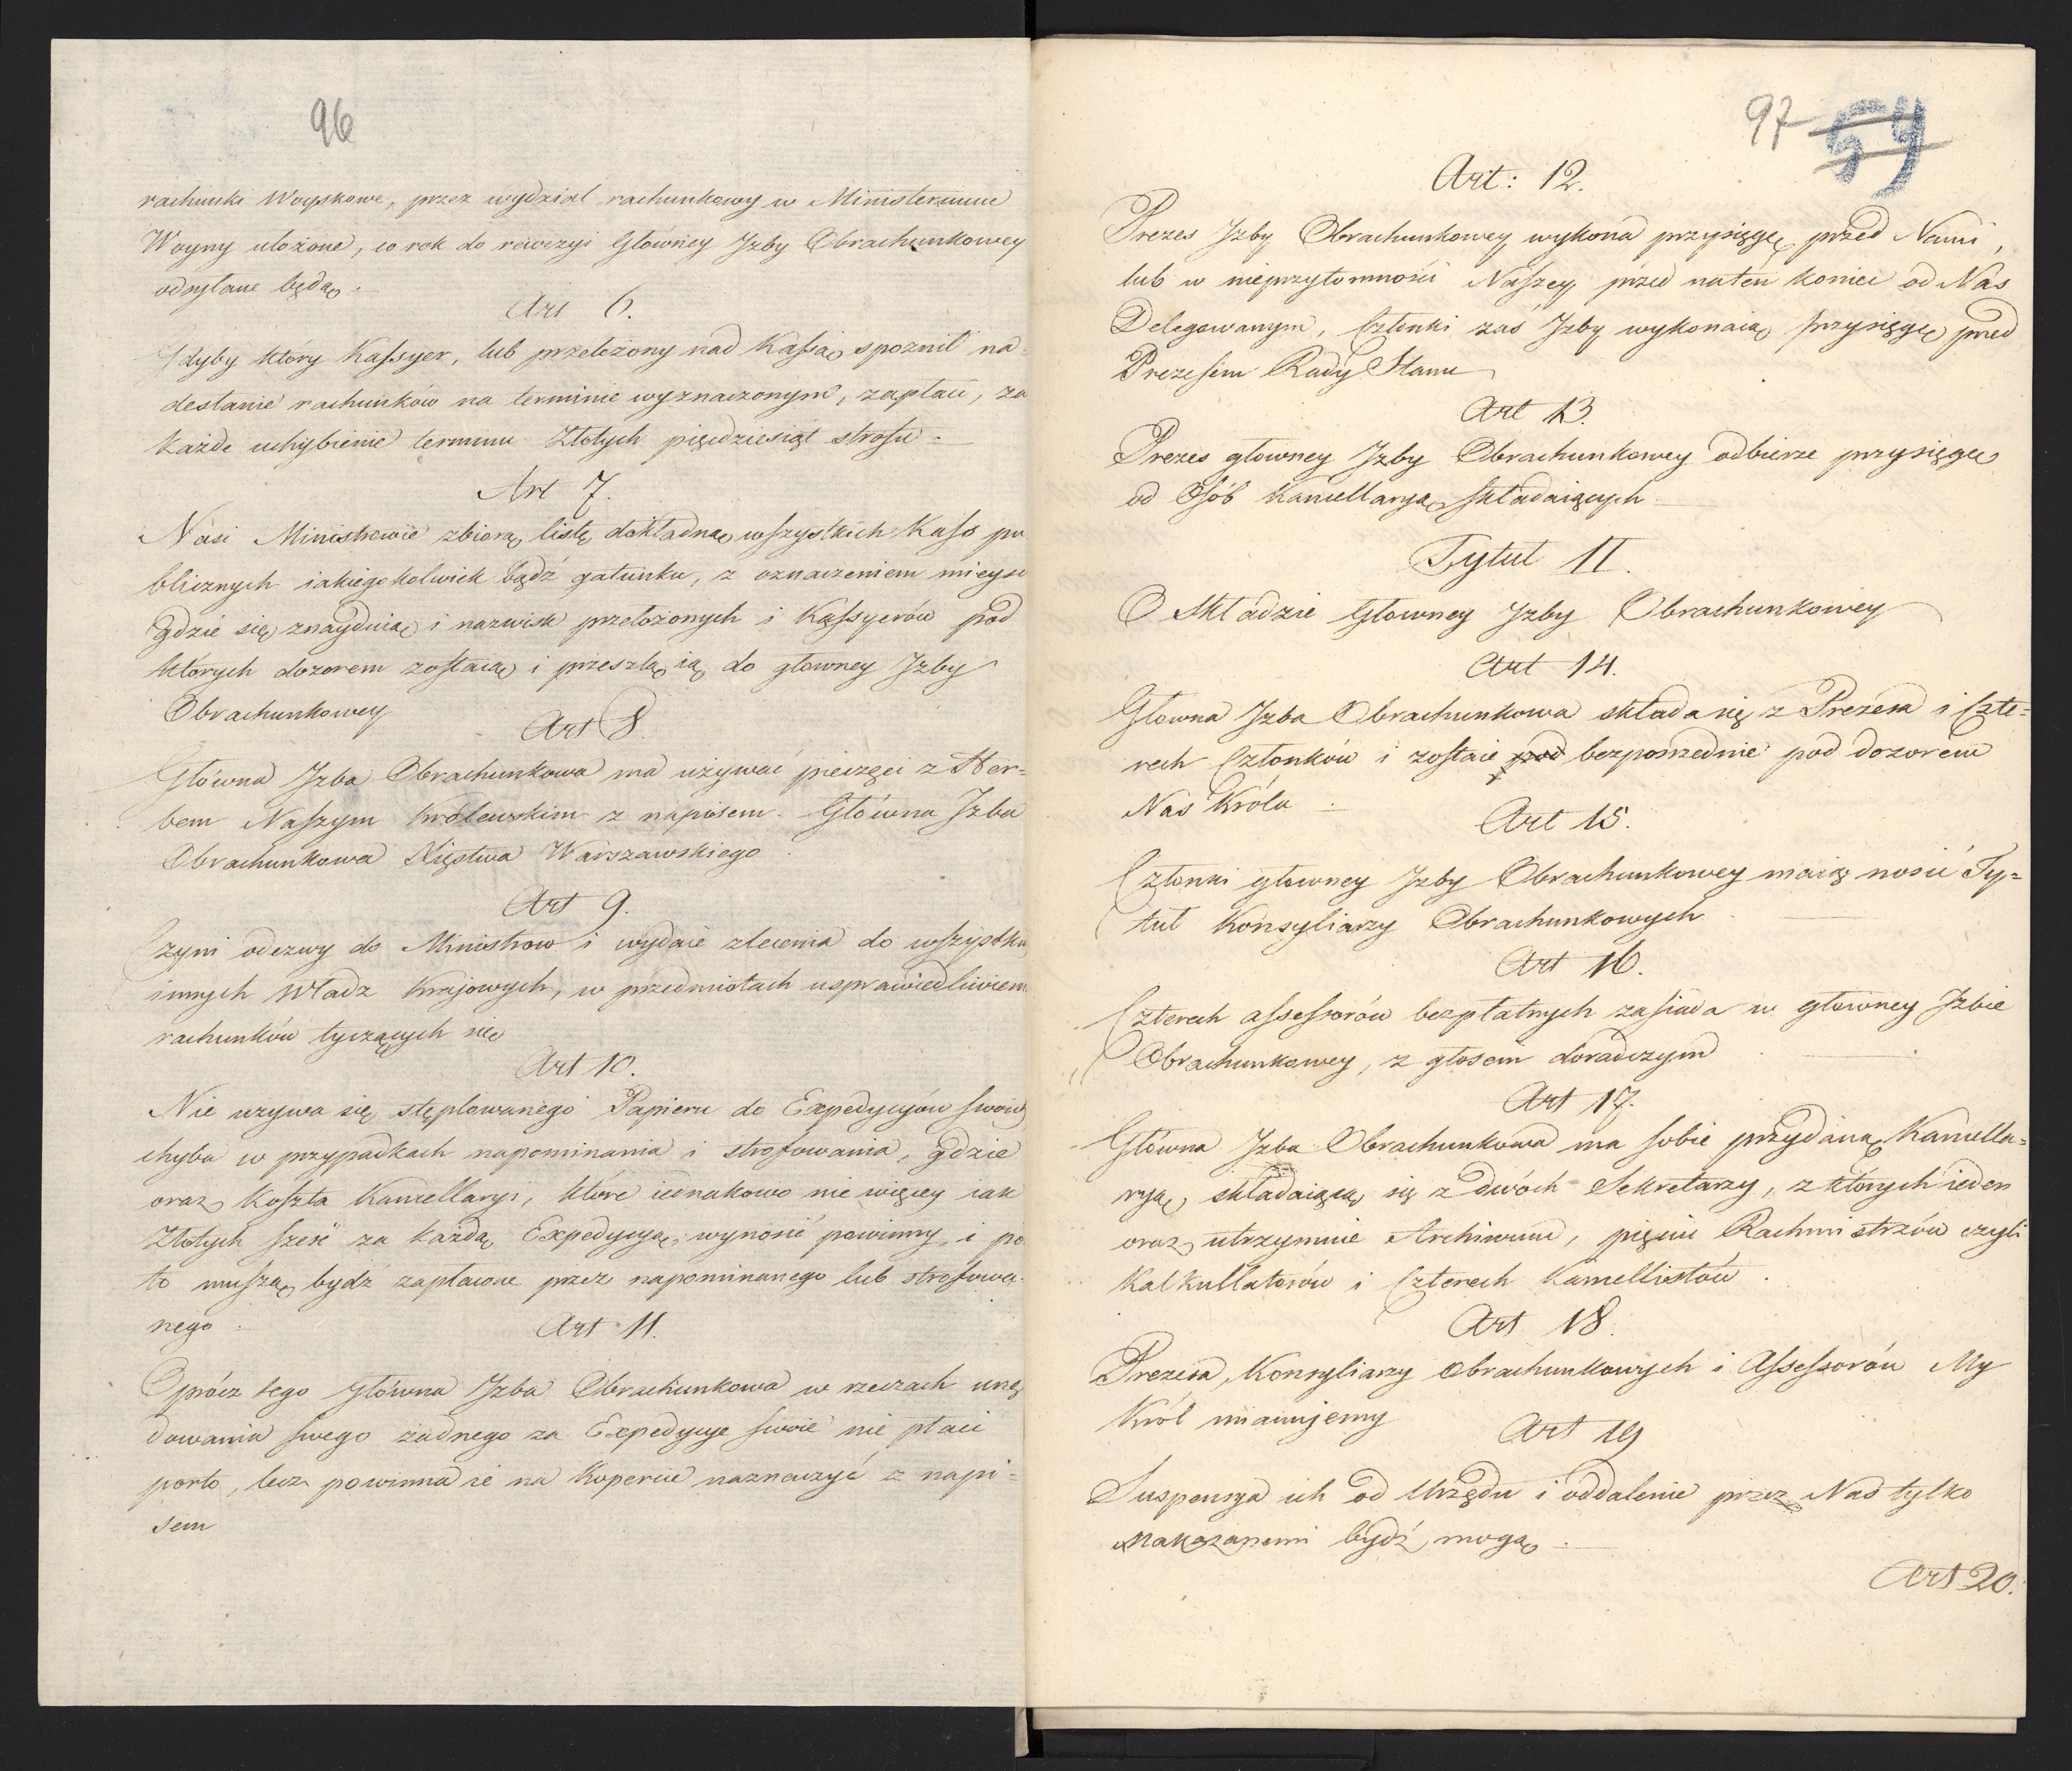 96
rachunki Woyskowe, przez wydział rachunkowy w Ministerium
Woyny ułożone, co rok do rewizyi Główney Jzby Obrachunkowey
odsyłane będą.
Art 6.
Gdyby ktory Kassyer, lub przełożony nad Kassią spoznił na=
desłanie rachunków na terminie wyznaczonym, zapłaci, za
każde uchybienie terminu Złotych pięćdziesiąt strofu.
Art 7.
Nasi Ministrowie zbiorą listę dokładną wszystkich Kass pu
blicznych iakiegokolwiek bądź gatunku, z oznaczeniem mieysc
gdzie się znayduią i nazwisk przełożonych i Kassyerów pod
których dozorem zostaią i przeszlą ią do głowney Jzby
Obrachunkowey
Art 8.
Główna Jzba Obrachunkowa ma używać pieczęci z Her=
bem Naszym Królewskim z napisem. Główna Jzba
Obrachunkowa Xięstwa Warszawskiego.
Art 9.
Czyni odezwy do Ministrow i wydaie zlecenia do wszystki
innych Władz Krajowych, w przedmiotach usprawiedliwien
rachunków tyczących się
Art 10.
Nie uzywa się stęplowanego Papieru do Expedycyów swoich
chyba w przypadkach napominania i strofowania, gdzie
oraz koszta Kancellaryi, które iednakowo nie więcey iak
Złotych sześć za każdą Expedycyą, wynosić powinny i po
to muszą bydź zapłacone przez napominanego lub strofowa-
nego.
Art 11.
Oprócz tego Główna Jzba Obrachunkowa w rzeczach urzę
dowania swego żadnego za Expedycye swoie nie płaci
porto, lecz powinna ie na Kopercie naznaczyć z napi=
sem
97 59
Art: 12.
Prezes Jzby Obrachunkowey wykona przysięgę przed Nami,
lub w nieprzytomności Naszey, przed na ten koniec od Nas
Delegowanym, Członki zaś Jzby wykonaią przysięgę przed
Prezesem Rady Stanu
Art 13.
Prezes głowney Jzby Obrachunkowey odbierze przysięgę
od Osób Kancellaryą składaiących
Tytuł II.
O Składzie Głowney Jzby Obrachunkowey
Art 14.
Głowna Jzba Obrachunkowa składa się z Prezesa i Czte=
rech Członków i zostaie pod bezpośrednie pod dozorem
Nas Króla.
Art 15.
Członki głowney Jzby Obrachunkowey maią nosić Ty=
tuł Konsyliarzy Obrachunkowych
Art 16.
Czterech assessorów bezpłatnych zasiada w głowney Jzbie
Obrachunkowey, z głosem doradczym
Art 17.
Główna Jzba Obrachunkowa ma sobie przydaną Kancella=
ryą, składaiącą się z dwóch Sekretarzy, z których ieden
oraz utrzymuie Archiwum, pięciu Rachmistrzów czyli
Kalkullatorów i Czterech Kancellistów.
Art 18.
Prezesa, Konsyliarzy Obrachunkowych i Assessorów My
Król mianujemy
Art 19
Suspensya ich od Urzędu i oddalenie przez Nas tylko
nakazanemi bydź mogą.
Art 20.